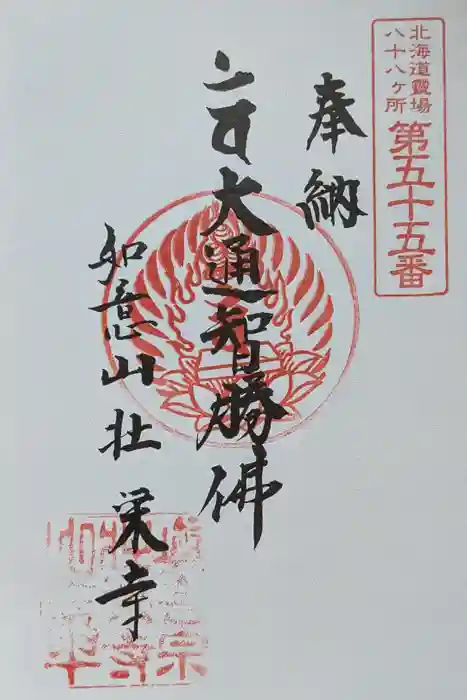 北海道霊場
八十八ヶ所
第五十五番
奉納
大通智勝佛
如意山 壮栄寺